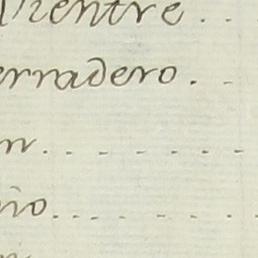 Vientre . .
erradero . .
n . . . . . . . .
io . . . . . . .